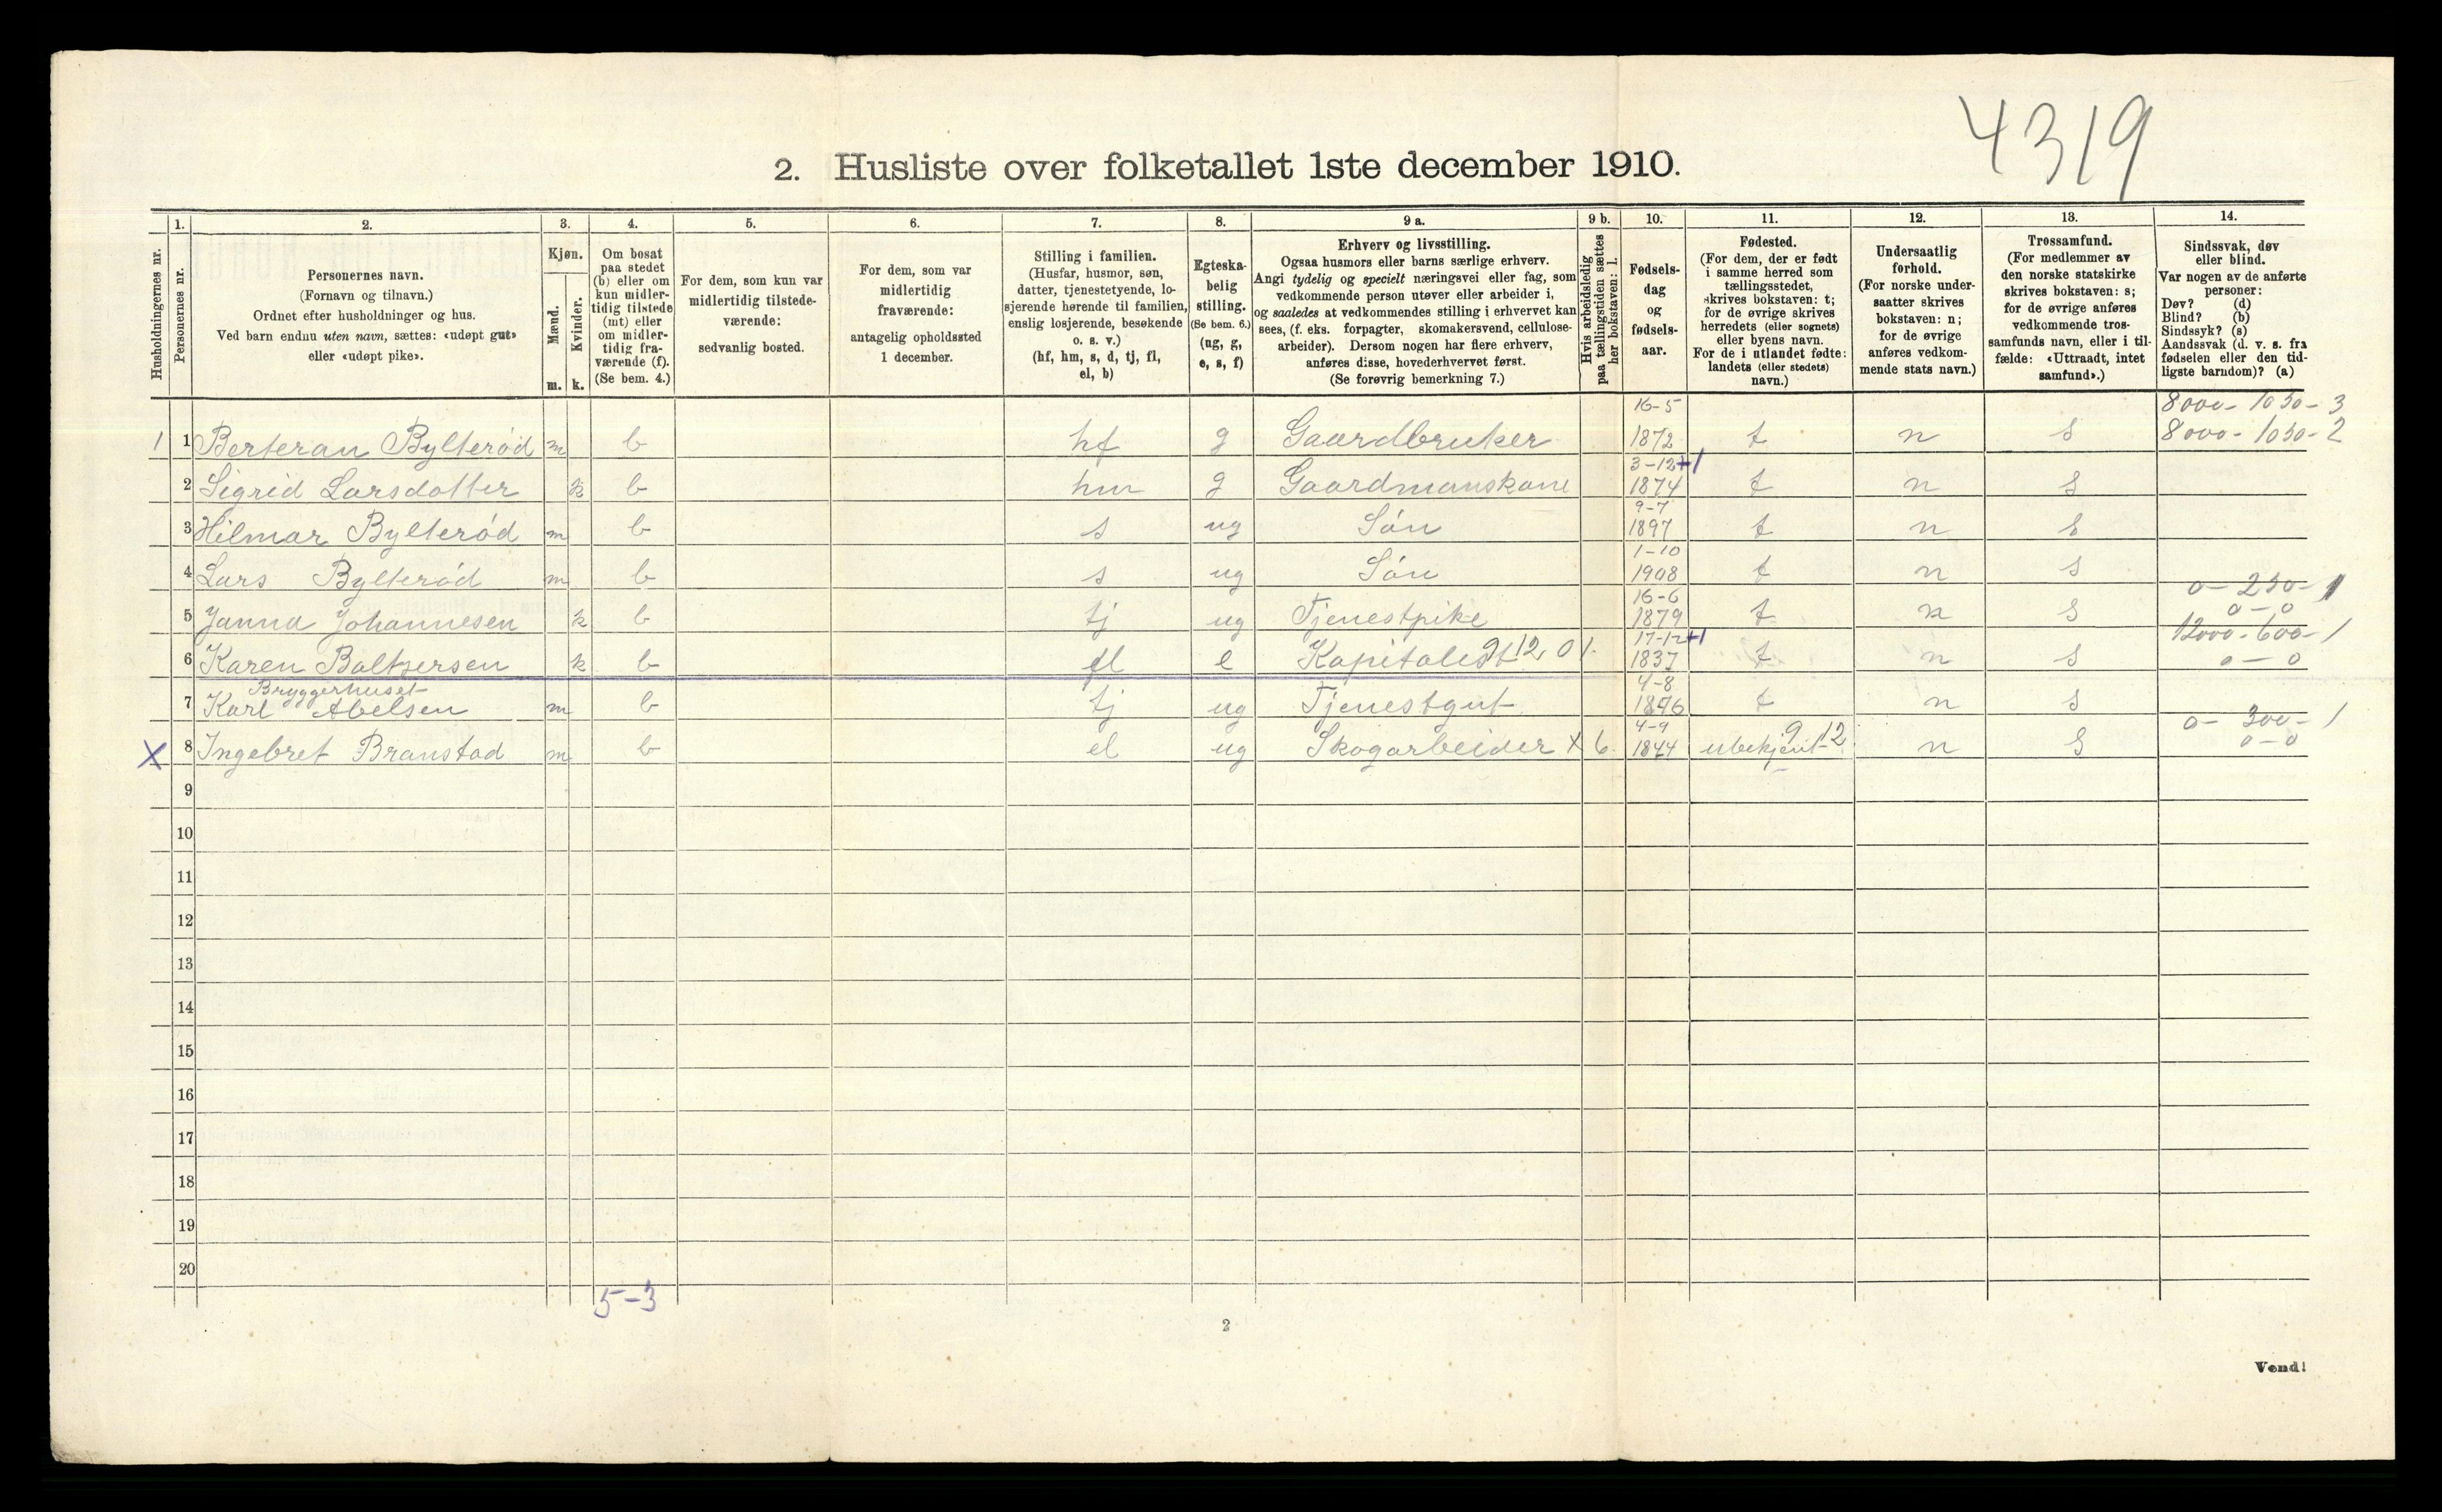 4319
2. Husliste over folketallet 1ste december 1910.
1. 2. 3. 4. 5. 6. 7. 8. 9 a. 9 b. 10. 11. 12. 13. 14.
Husholdningernes nr.
Personernes nr.
Personernes navn.
(Fornavn og tilnavn.)
Ordnet efter husholdninger og hus.
Ved barn endnu uten navn, sættes: «udøpt gut»
eller «udøpt pike».
Kjøn.
Mænd.
Kvinder.
m. k.
Om bosat
paa stedet
(b) eller om
kun midler-
tidig tilstede
(mt) eller
om midler-
tidig fra-
værende (f).
(Se bem. 4.)
For dem, som kun var
midlertidig tilstede-
værende:
sedvanlig bosted.
For dem, som var
midlertidig
fraværende:
antagelig opholdssted
1 december.
Stilling i familien.
(Husfar, husmor, søn,
datter, tjenestetyende, lo-
sjerende hørende til familien,
enslig losjerende, besøkende
o. s. v.)
(hf, hm, s, d, tj, fl,
el, b)
Egteska-
belig
stilling.
(Se bem. 6.)
(ug, g,
e, s, f)
Erhverv og livsstilling.
Ogsaa husmors eller barns særlige erhverv.
Angi tydelig og specielt næringsvei eller fag, som
vedkommende person utøver eller arbeider i,
og saaledes at vedkommendes stilling i erhvervet kan
sees, (f. eks. forpagter, skomakersvend, cellulose-
arbeider). Dersom nogen har flere erhverv,
anføres disse, hovederhvervet først.
(Se forøvrig bemerkning 7.)
Hvis arbeidsledig
paa tællingstiden sættes
her bokstaven: l.
Fødsels-
dag
og
fødsels-
aar.
Fødested.
(For dem, der er født
i samme herred som
tællingsstedet,
skrives bokstaven: t;
for de øvrige skrives
herredets (eller sognets)
eller byens navn.
For de i utlandet fødte:
landets (eller stedets)
navn.)
Undersaatlig
forhold.
(For norske under-
saatter skrives
bokstaven: n;
for de øvrige
anføres vedkom-
mende stats navn.)
Trossamfund.
(For medlemmer av
den norske statskirke
skrives bokstaven: s;
for de øvrige anføres
vedkommende tros-
samfunds navn, eller i til-
fælde: «Uttraadt, intet
samfund».)
Sindssvak, døv
eller blind.
Var nogen av de anførte
personer:
Døv? (d)
Blind? (b)
Sindssyk? (s)
Aandssvak (d. v. s. fra
fødselen eller den tid-
ligste barndom)? (a)
16-5 8000 - 1050 - 3
1 1 Berteran Bylterød m b hf g Gaardbruker 1872 t n s 8000 - 1050 - 2
3-12 +1
2 Sigrid Larsdotter k b hm g Gaardmanskone 1874 t n s
9-7
3 Hilmar Bylterød m b s ug Søn 1897 t n s
1-10
4 Lars Bylterød m b s ug Søn 1908 t n s
16-6 0 - 250 - 1
5 Janna Johannesen k b tj ug Tjenestpike 1879 t n s 0 - 0
17-12 +1 12000 - 600 - 1
6 Karen Baltzersen k b fl e Kapitalist 9 12 01. 1837 t n s 0 - 0
Bryggerhuset 4-8
7 Karl Abelsen m b tj ug Tjenestgut 1896 t n s
4-9 9 12 0 - 300 - 1
X 8 Ingebret Branstad m b el ug Skogarbeider x 6. 1844 ubekjent n s 0 - 0
9
10
11
12
13
14
15
16
17
18
19
20
5-3
2
Vend!